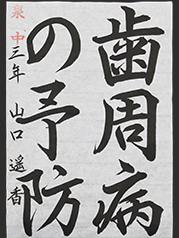 歯周病
の予防
泉中三年 山口遥香